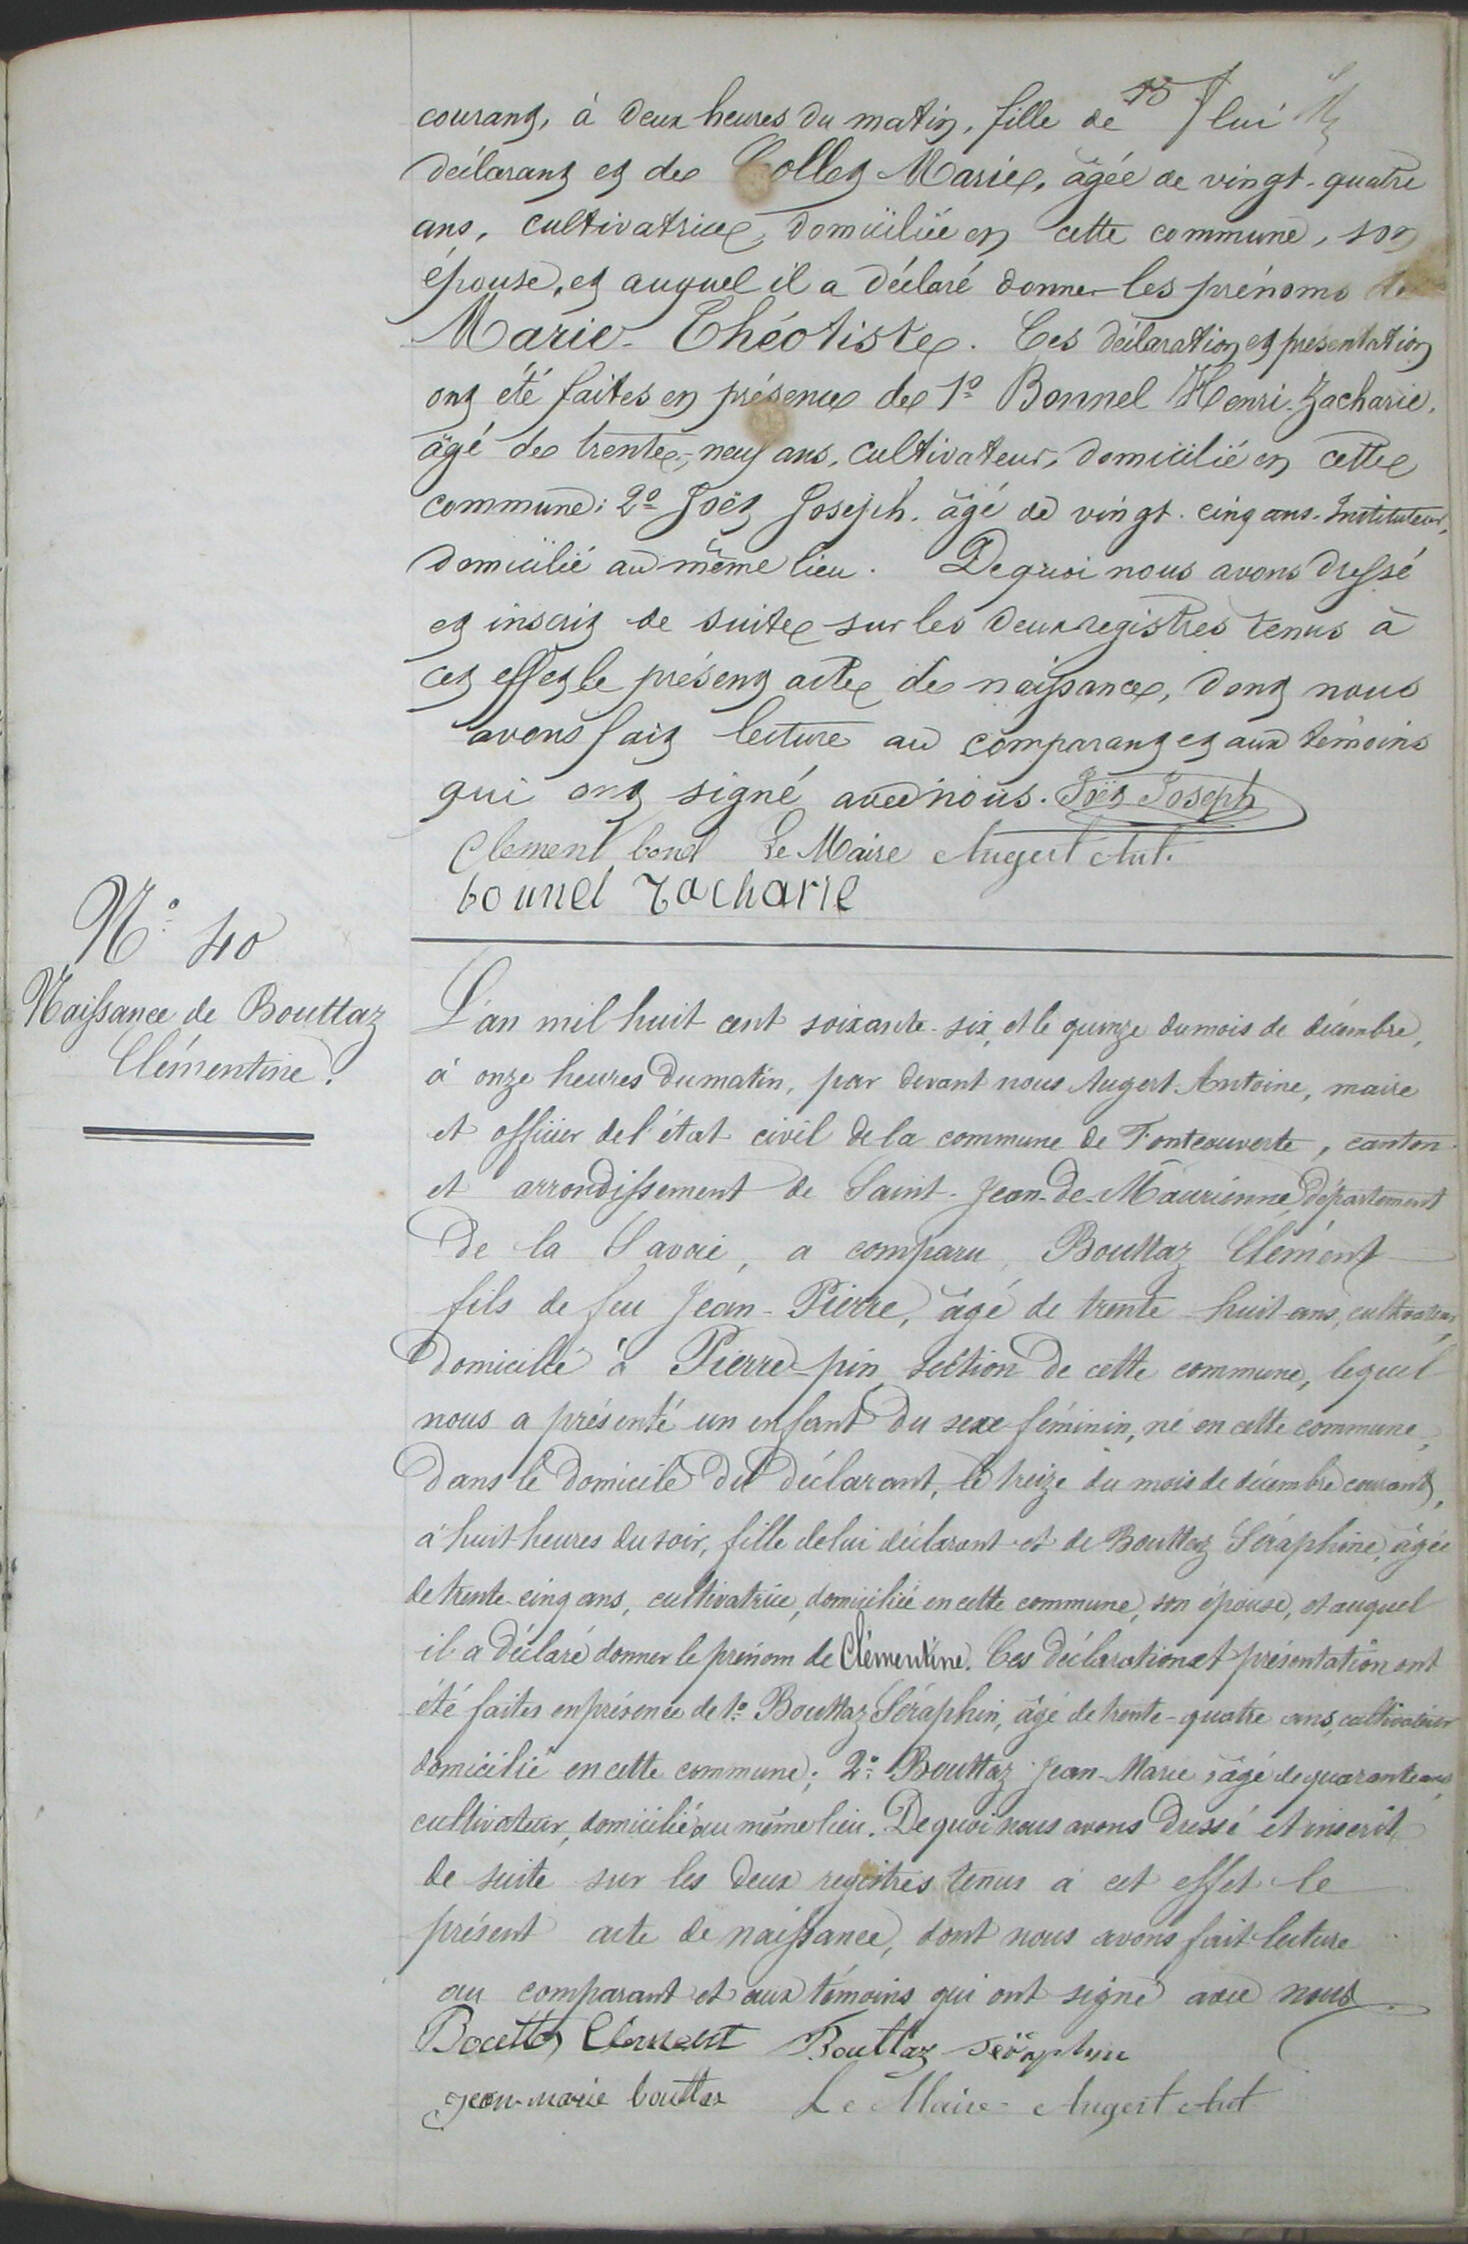 15
courant, à deux heures du matin, fille de lui
déclarant et de Collet Marie, âgée de vingt-quatre
ans, cultivatrice, domiciliée en cette commune, son
épouse, et auquel il a déclaré donner les prénoms de
Marie-Théotiste. Ces déclaration et présentation
ont été faites en présence de 1º Bonnel Henri-Zacharie,
âgé de trente-neuf ans, cultivateur, domicilié en cette
commune; 2º Joët Joseph, âgé de vingt-cinq ans, Instituteur,
domicilié au même lieu. De quoi nous avons dressé
et inscrit de suite sur les deux registres tenus à
cet effet le présent acte de naissance, dont nous
avons fait lecture au comparant et aux témoins
qui ont signé avec nous. Joët Joseph
Clement bonel Le Maire Augert Ant.
bonnel Zacharie
Nº 40
Naissance de Bouttaz
Clémentine.
L'an mil huit cent soixante-six, et le quinze du mois de décembre,
à onze heures du matin, par devant nous Augert Antoine, maire
et officier de l'état civil de la commune de Fontcouverte, canton
et arrondissement de Saint-Jean-de-Maurienne, département
de la Savoie, a comparu, Bouttaz Clément
fils de feu Jean-Pierre, âgé de trente-huit ans, cultivateur,
domicilié à Pierre-pin, section de cette commune, lequel
nous a présenté un enfant du sexe féminin, né en cette commune,
dans le domicile du déclarant, le treize du mois de décembre courant,
à huit heures du soir, fille de lui déclarant et de Bouttaz Séraphine, âgée
de trente-cinq ans, cultivatrice, domiciliée en cette commune, son épouse, et auquel
il a déclaré donner le prénom de Clémentine. Ces déclaration et présentation ont
été faites en présence de 1º Bouttaz Séraphin, âgé de trente-quatre ans, cultivateur
domicilié en cette commune; 2º Bouttaz Jean-Marie, âgé de quarante ans,
cultivateur, domicilié au même lieu. De quoi nous avons dressé et inscrit
de suite sur les deux registres tenus à cet effet le
présent acte de naissance, dont nous avons fait lecture
au comparant et aux témoins qui ont signé avec nous.
Bouttaz Clement Bouttaz Séraphin
jean-marie bouttaz Le Maire Augert Ant